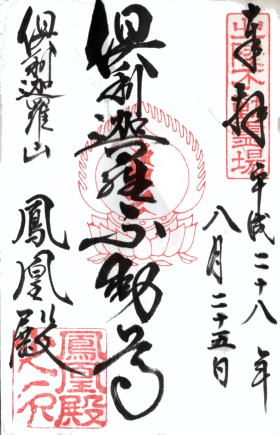 奉拝
平成二十八年
八月二十五日
倶利迦羅不動尊
倶利迦羅山
鳳凰殿
鳳凰殿